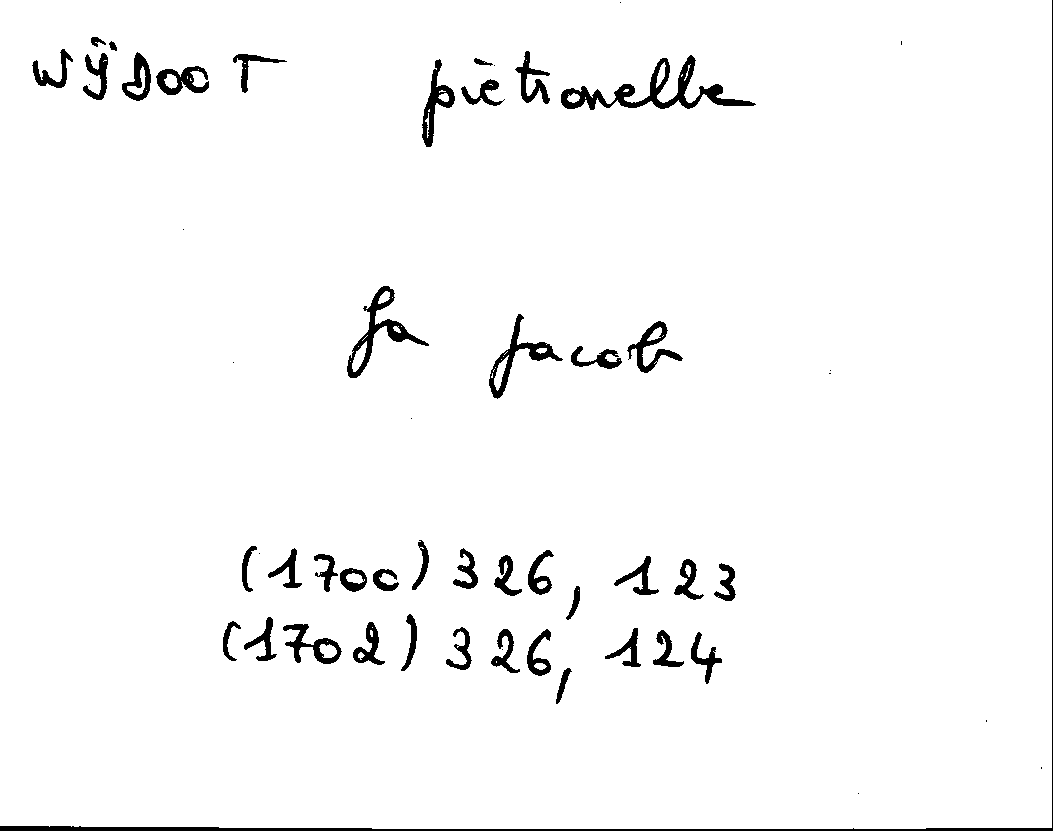 WŸDOOT pietronelle
fa Jacob
(1700) 326, 123
(1702) 326, 124